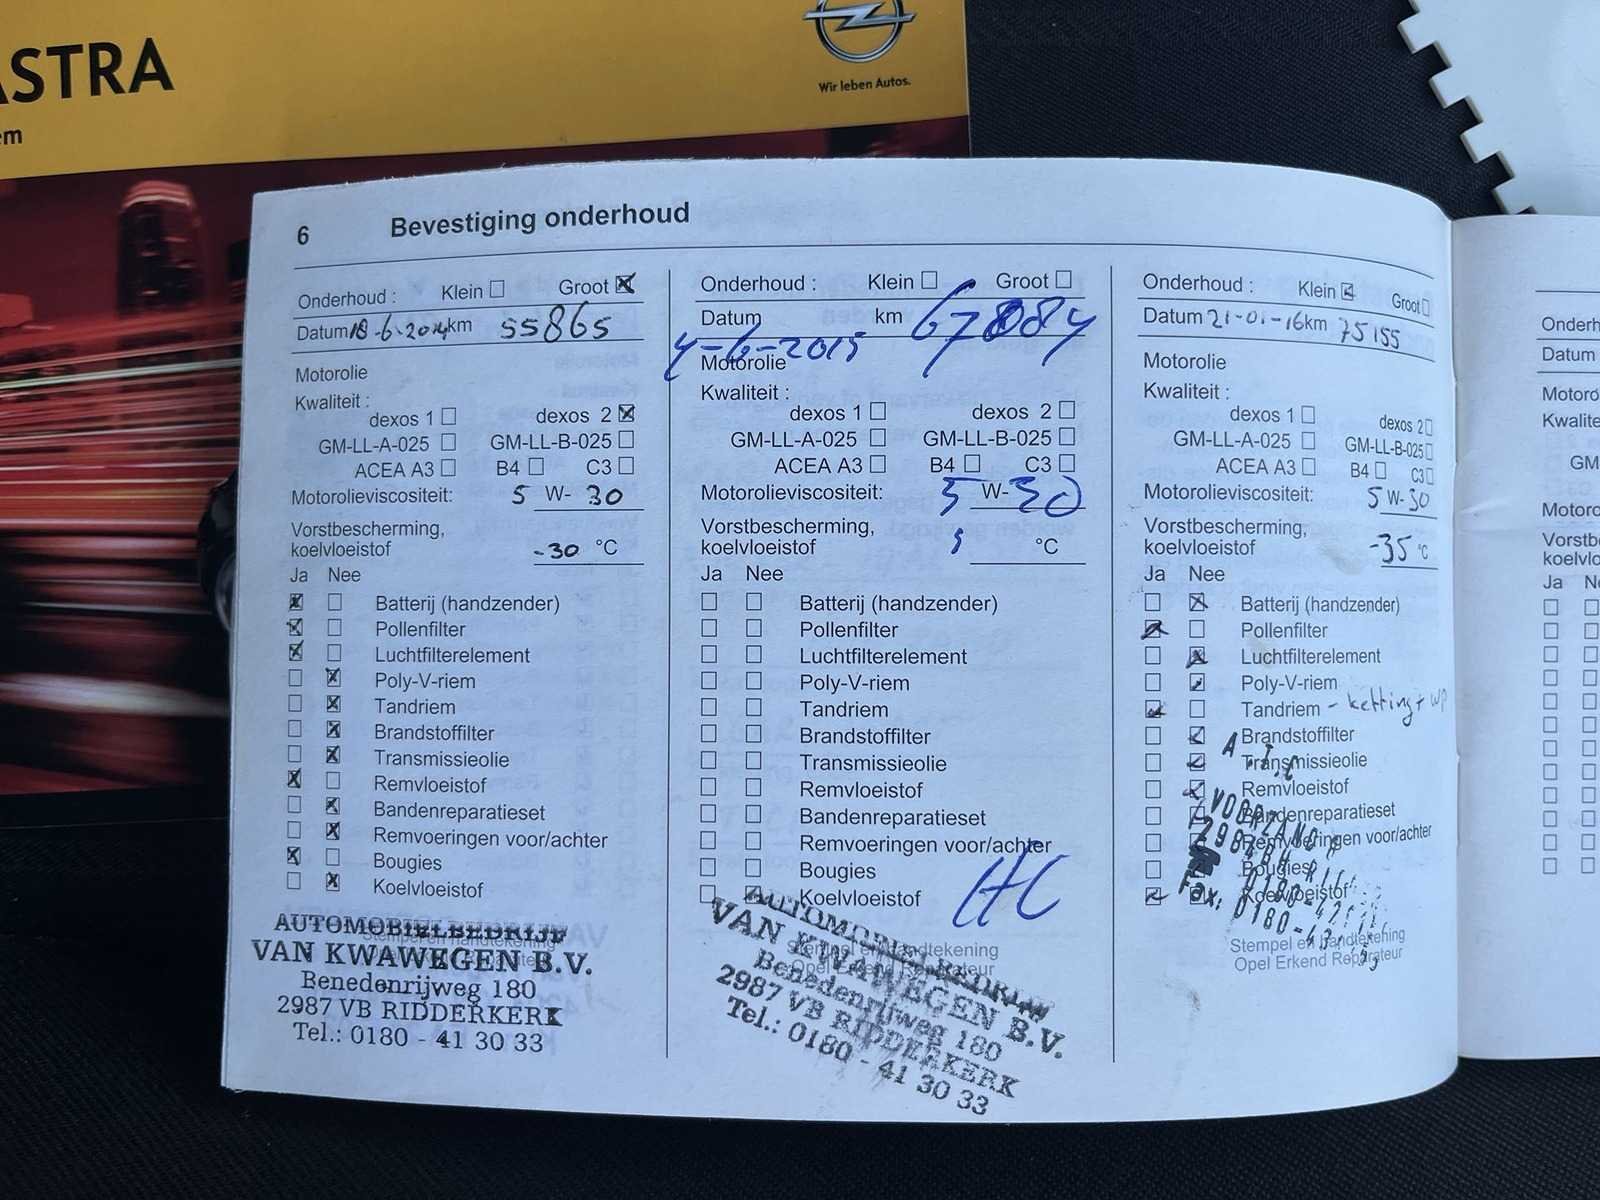 ASTRA
em
Wir leben Autos.
6 Bevestiging onderhoud
Onderhoud : Klein Groot
Datum 18-6-2014 km 55865
Motorolie
Kwaliteit :
dexos 1 dexos 2
GM-LL-A-025 GM-LL-B-025
ACEA A3 B4 C3
Motorolieviscositeit: 5 W- 30
Vorstbescherming,
koelvloeistof -30 °C
Ja Nee
Batterij (handzender)
Pollenfilter
Luchtfilterelement
Poly-V-riem
Tandriem
Brandstoffilter
Transmissieolie
Remvloeistof
Bandenreparatieset
Remvoeringen voor/achter
Bougies
Koelvloeistof
Stempel en handtekening
AUTOMOBIELBEDRIJF
VAN KWAWEGEN B.V.
Benedenrijweg 180
2987 VB RIDDERKERK
Tel.: 0180 - 41 30 33
Onderhoud : Klein Groot
Datum km 67884
4-6-2015
Motorolie
Kwaliteit :
dexos 1 dexos 2
GM-LL-A-025 GM-LL-B-025
ACEA A3 B4 C3
Motorolieviscositeit: 5 W- 30
Vorstbescherming,
koelvloeistof °C
Ja Nee
Batterij (handzender)
Pollenfilter
Luchtfilterelement
Poly-V-riem
Tandriem
Brandstoffilter
Transmissieolie
Remvloeistof
Bandenreparatieset
Remvoeringen voor/achter
Bougies
Koelvloeistof
Stempel en handtekening
Opel Erkend Reparateur
AUTOMOBIELBEDRIJF
VAN KWAWEGEN B.V.
Benedenrijweg 180
2987 VB RIDDERKERK
Tel.: 0180 - 41 30 33
Onderhoud : Klein Groot
Datum 21-01-16 km 75155
Motorolie
Kwaliteit :
dexos 1 dexos 2
GM-LL-A-025 GM-LL-B-025
ACEA A3 B4 C3
Motorolieviscositeit: 5 W- 30
Vorstbescherming,
koelvloeistof -35 °C
Ja Nee
Batterij (handzender)
Pollenfilter
Luchtfilterelement
Poly-V-riem
Tandriem - ketting + WP
Brandstoffilter
Transmissieolie
Remvloeistof
Bandenreparatieset
Remvoeringen voor/achter
Bougies
Koelvloeistof
Stempel en handtekening
Opel Erkend Reparateur
Fax: 0180-
Onderh
Datum
Motoro
Kwalite
GM
Motoro
Vorstb
koelvlo
Ja